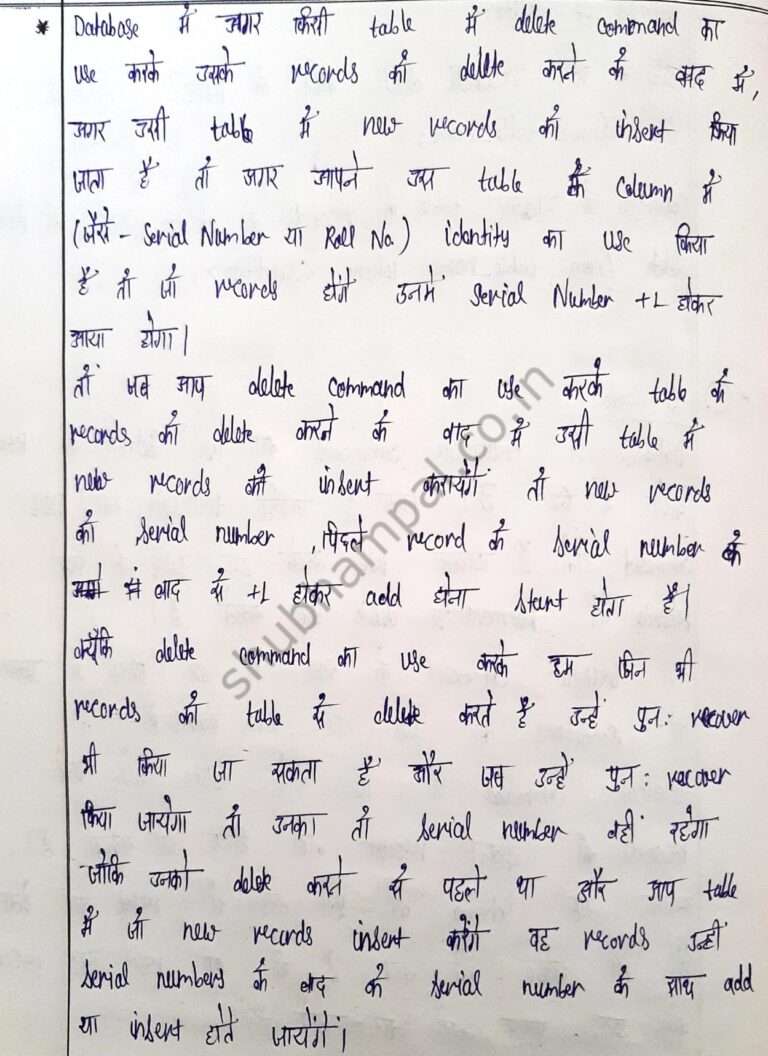 * Database में अगर किसी table में delete command का
use करके उसके records को delete करने के बाद में,
अगर उसी table में new records को insert किया
जाता है तो अगर आपने उस table के column में
(जैसे - Serial Number या Roll No.) identity का use किया
है तो जो records होंगे उनमे serial Number +1 होकर
आया होगा।
तो जब आप delete command का use करके table के
records को delete करने के बाद में उसी table में
new records को insert करायेंगे तो new records
को serial number, पिछले record के serial number के
बाद से +1 होकर add होना start होता है।
क्योंकि delete command का use करके हम जिन भी
records को table से delete करते है उन्हें पुनः recover
भी किया जा सकता है और जब उन्हें पुनः recover
किया जायेगा तो उनका तो serial number वहीं रहेगा
जोकि उनको delete करने से पहले था और आप table
में जो new records insert करेंगे वह records उन्हीं
serial numbers के बाद के serial number के साथ add
या insert होते जायेंगे।
shubhampal.co.in